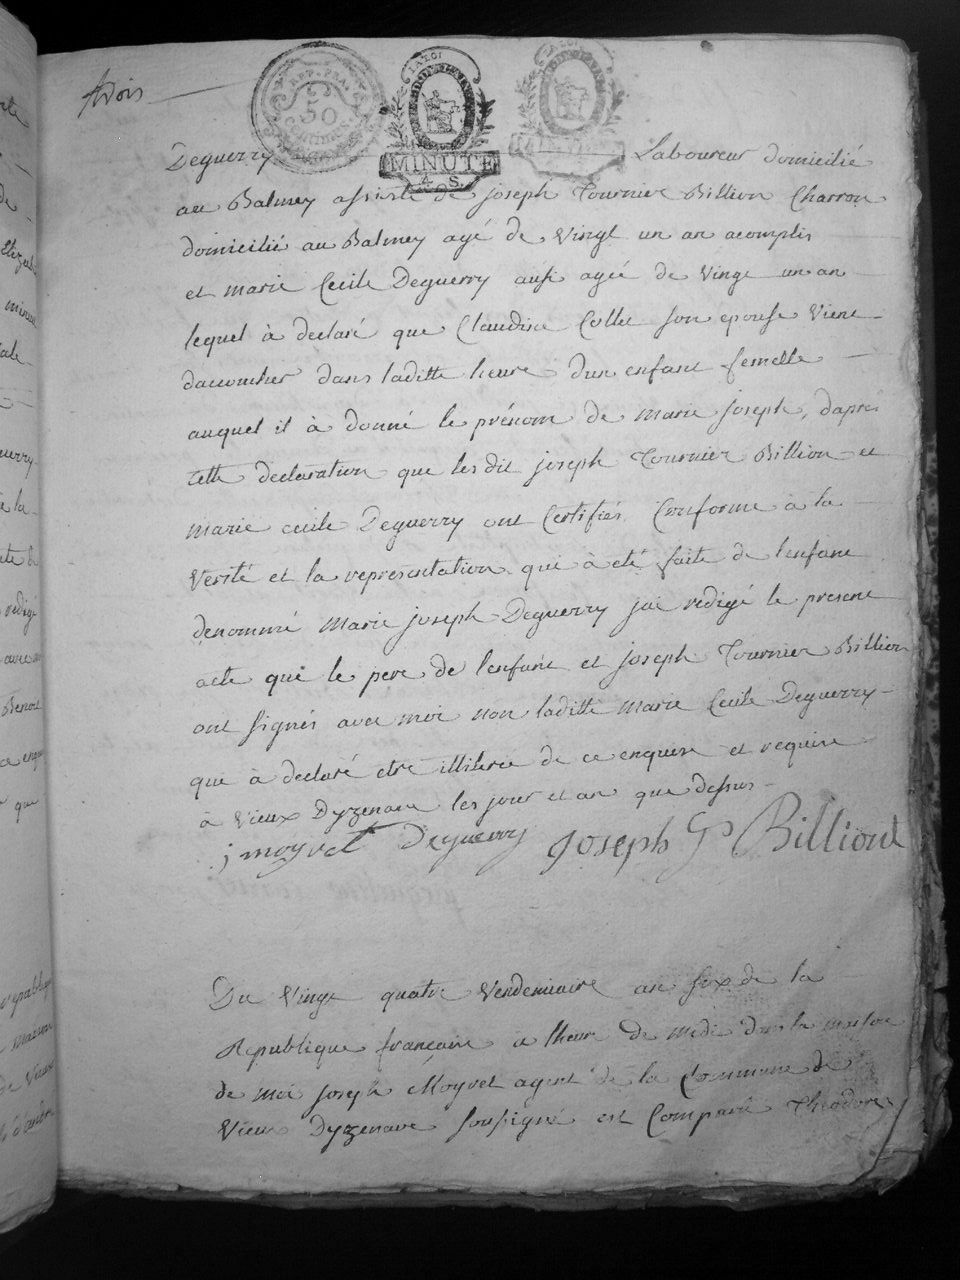 trois
REP. FRA.
50
Centimes
LA LOI
MINUTE
4 S.
LA LOI
MINUTE
Deguerry Laboureur domicilié
au Balmey assisté de joseph Tournier Billion Charron
domicilié au Balmey agé de Vingt un an acomplis
et marie Cecile Deguerry ausi agée de Vingt un an
lequel à declaré que Claudine Collet son epouse Vient
daccoucher dans laditte heure dun enfant femelle
auquel il à donné le prénom de marie joseph, daprés
cette declaration que les dit joseph Tournier Billion et
marie cecile Deguerry ont Certifiés Conforme à la
Verité et la representation qui à eté faite de lenfant
denommé Marie joseph Deguerry jai redigé le present
acte que le pere de lenfant et joseph Tournier Billion
ont signés avec moi non laditte marie Cecile Deguerry
qui à declaré etre illiterée de ce enquise et requise
à Vieux Dyzenave les jour et an que dessus
j moyret Deguerry Joseph Billiont
Du Vingt quatre Vendemiaire an six de la
Republique française a lheure de midi dans la maison
de moi joseph Moyret agent de la Commune de
Vieux Dyzenave soussigné est Comparu Théodore